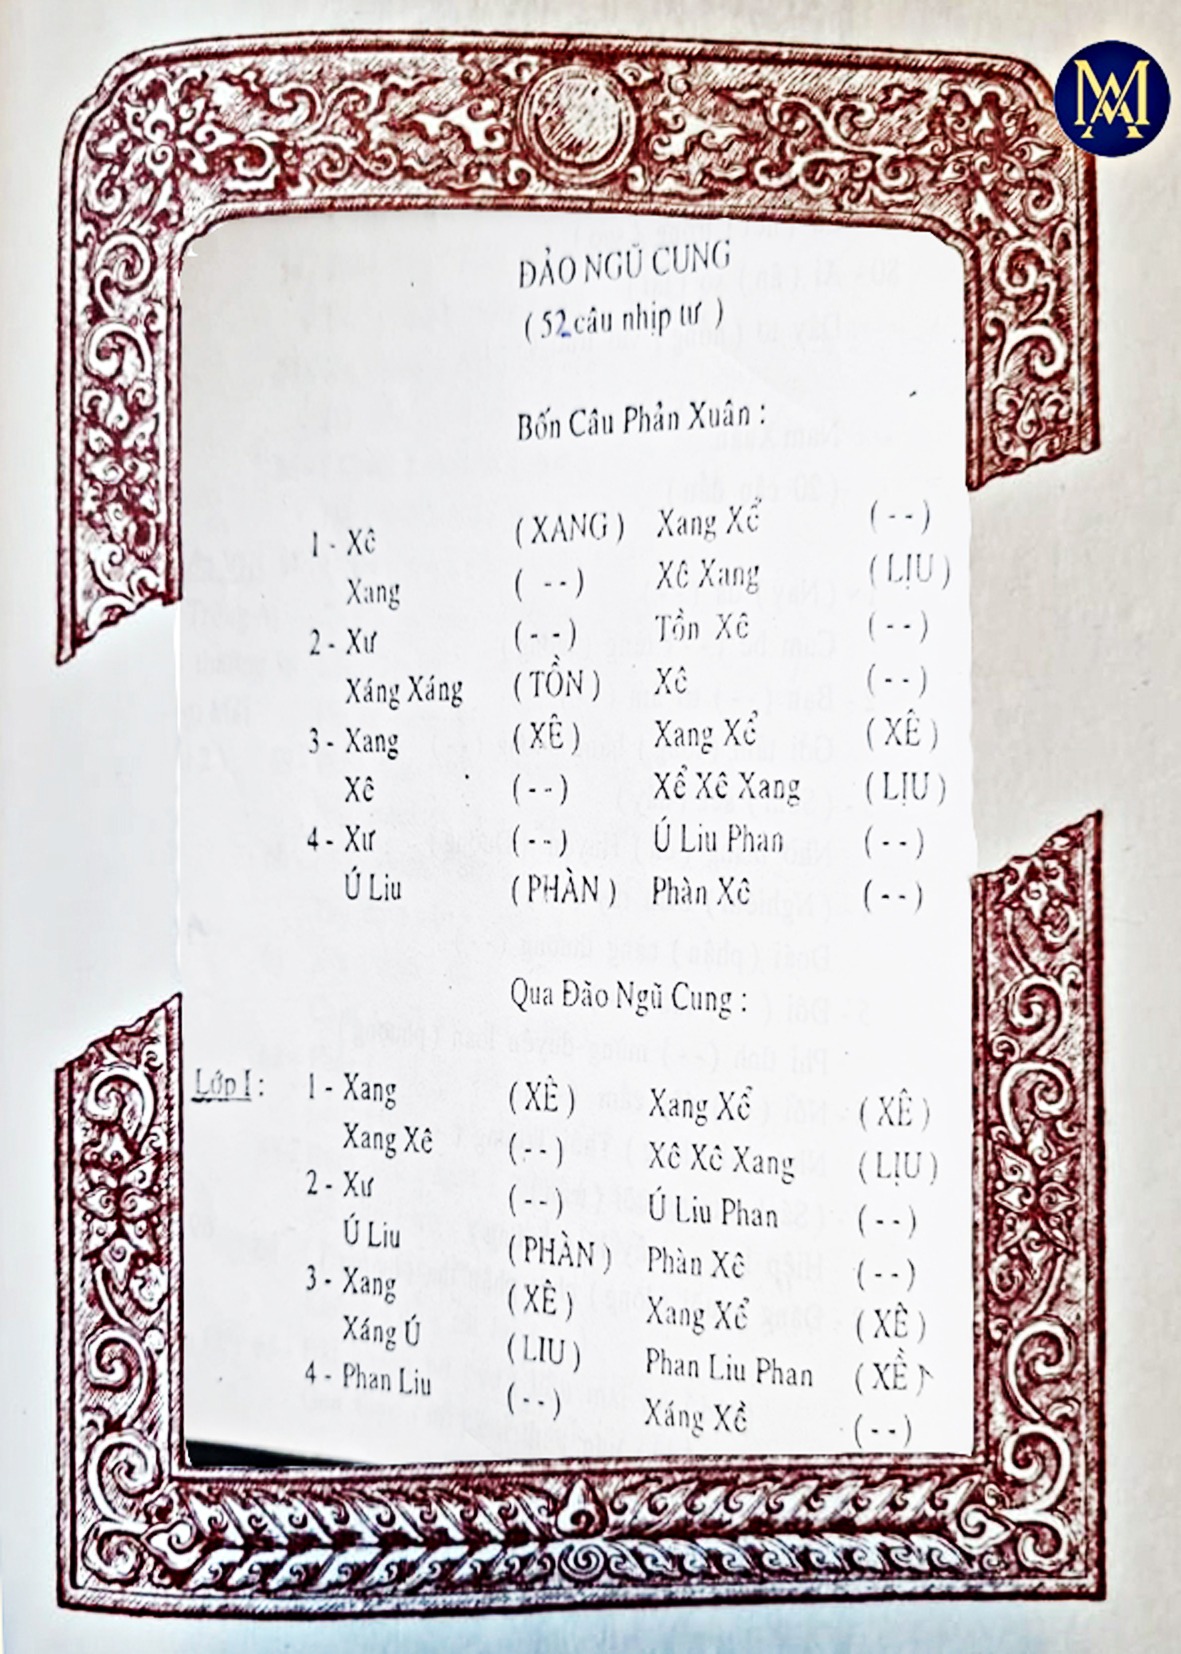 MA
ĐẢO NGŨ CUNG
( 52 câu nhịp tư )
Bốn Câu Phản Xuân :
1 - Xê ( XANG ) Xang Xể ( - - )
Xang ( - - ) Xê Xang ( LỊU )
2 - Xư ( - - ) Tồn Xê ( - - )
Xáng Xáng ( TỒN ) Xê ( - - )
3 - Xang ( XÊ ) Xang Xể ( XÊ )
Xê ( - - ) Xể Xê Xang ( LỊU )
4 - Xư ( - - ) Ú Liu Phan ( - - )
Ú Liu ( PHÀN ) Phàn Xê ( - - )
Qua Đảo Ngũ Cung :
Lớp I : 1 - Xang ( XÊ ) Xang Xể ( XÊ )
Xang Xê ( - - ) Xê Xê Xang ( LỊU )
2 - Xư ( - - ) Ú Liu Phan ( - - )
Ú Liu ( PHÀN ) Phàn Xê ( - - )
3 - Xang ( XÊ ) Xang Xể ( XÊ )
Xáng Ú ( LIU ) Phan Liu Phan ( XỀ )
4 - Phan Liu ( - - ) Xáng Xề ( - - )